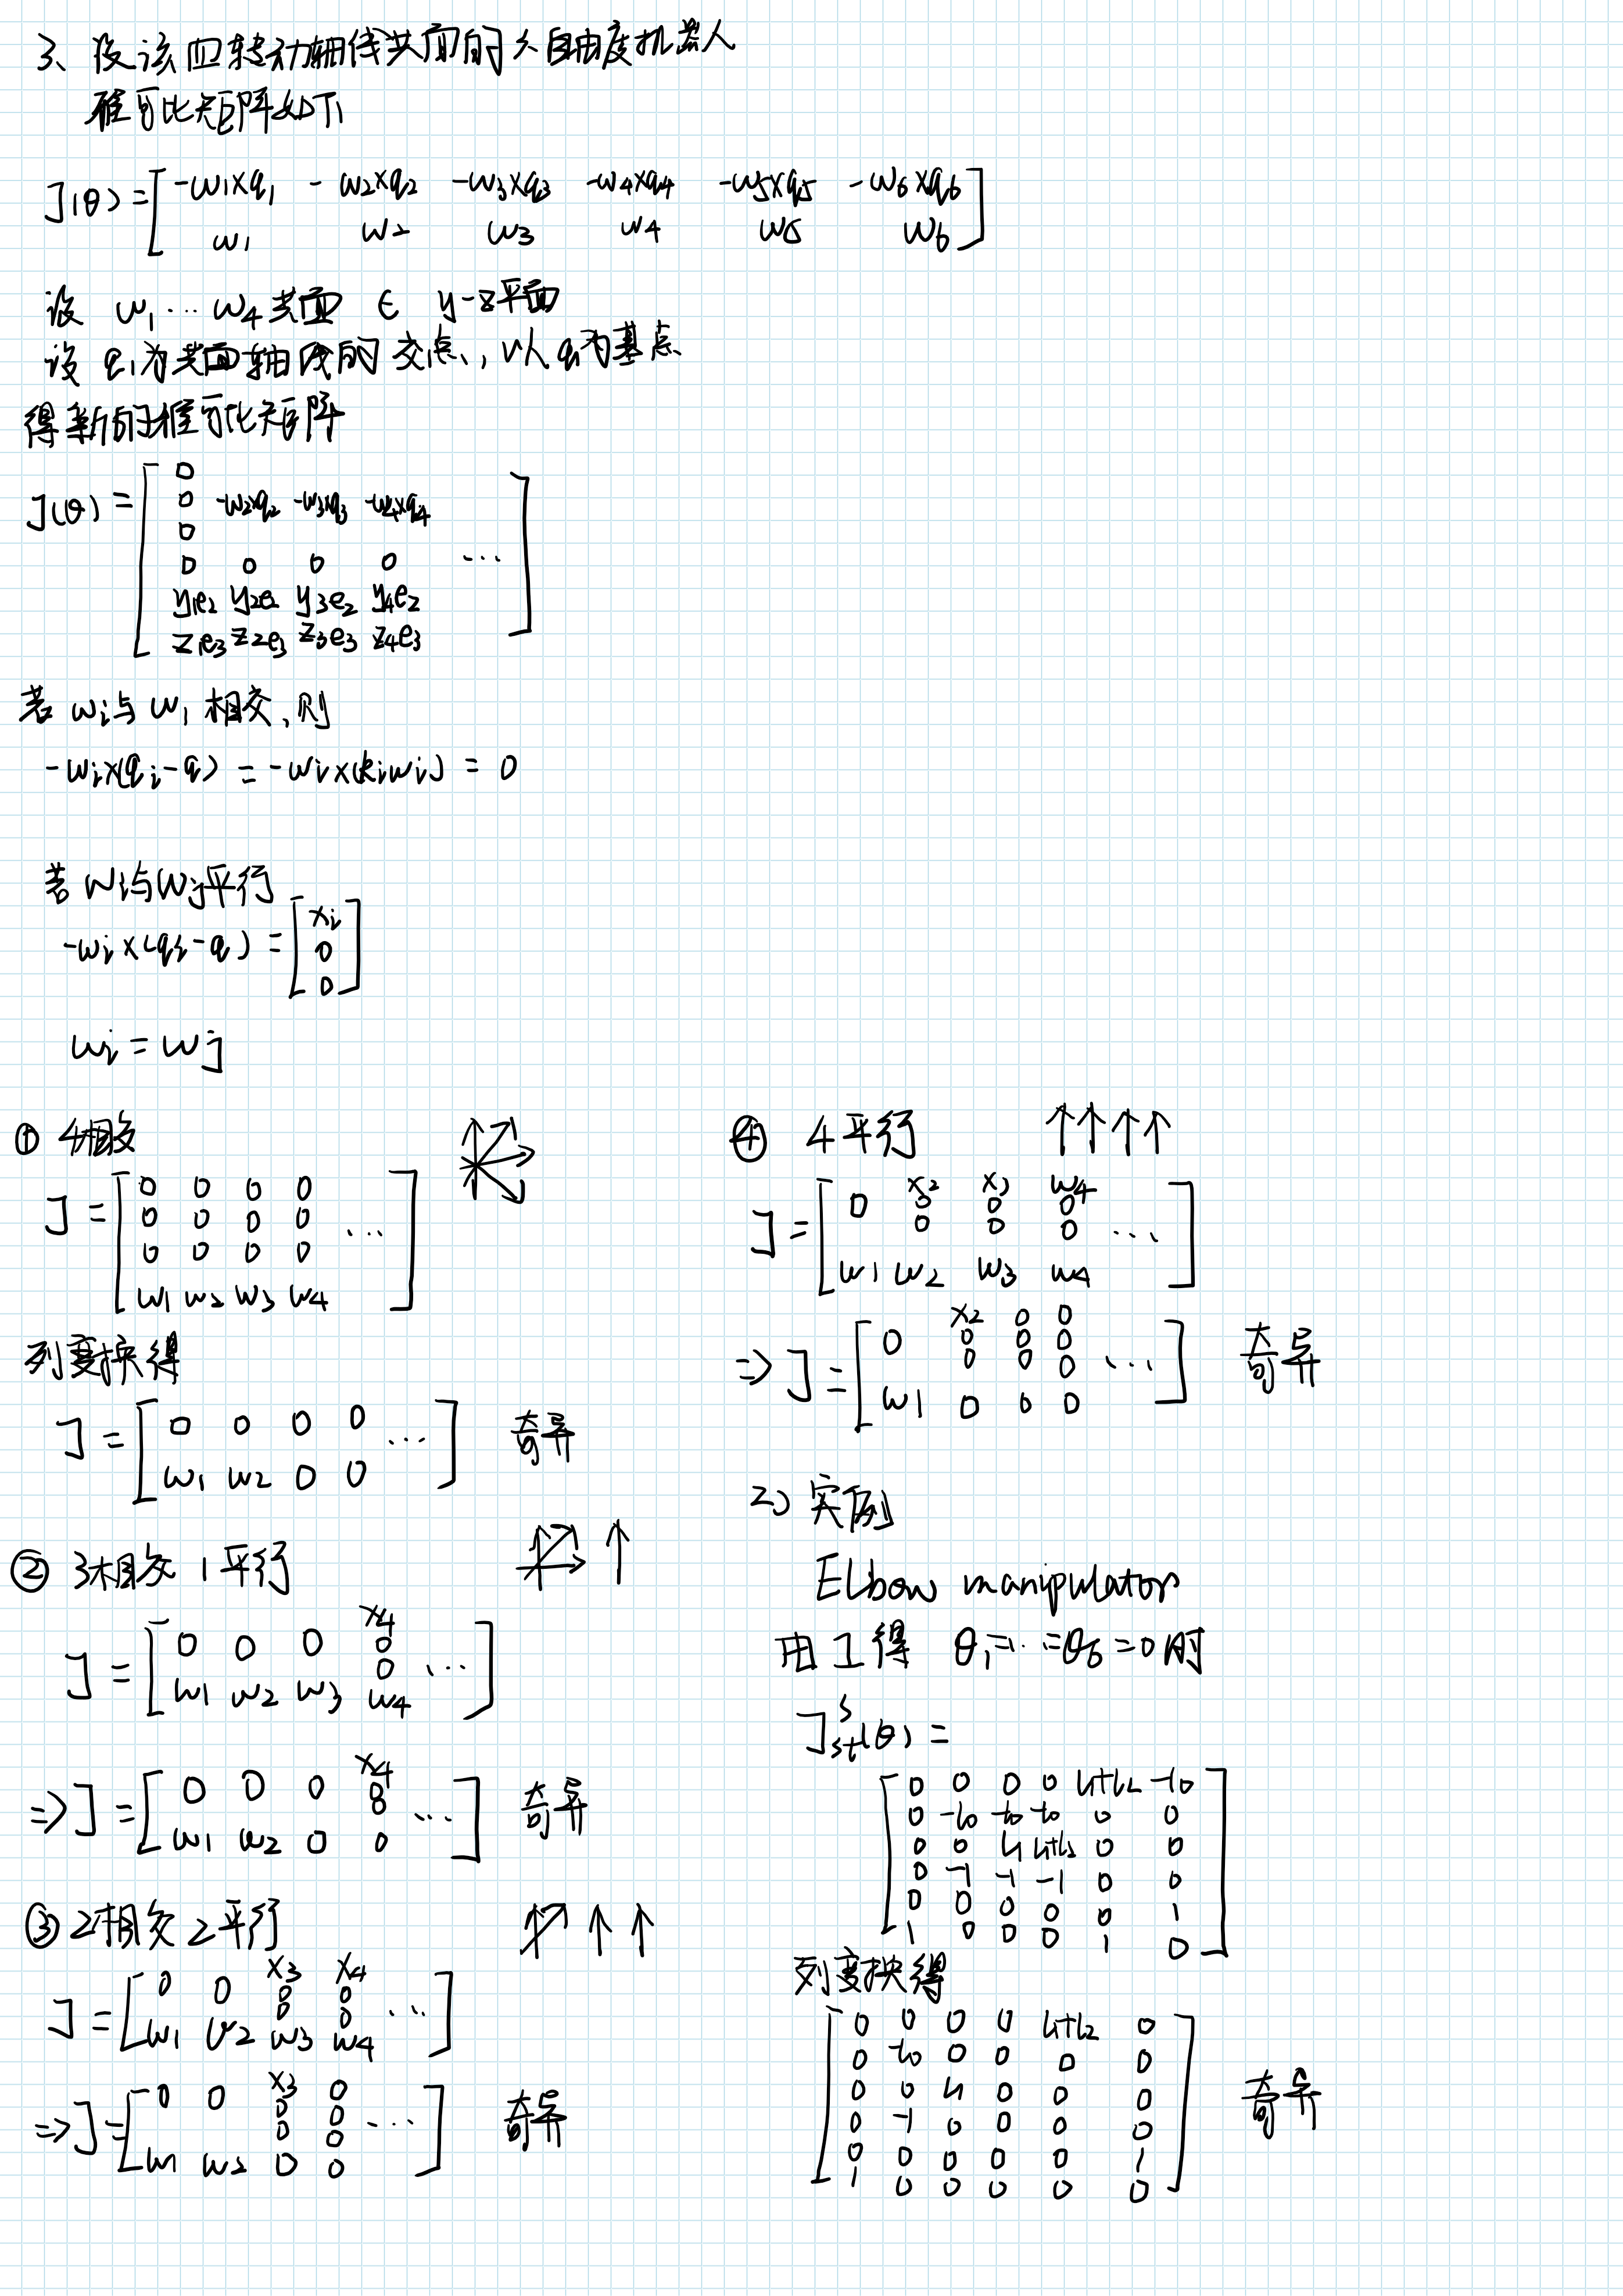 3、设该四转动轴线共面的六自由度机器人
雅可比矩阵如下
J(θ) = [ -ω1×q1 -ω2×q2 -ω3×q3 -ω4×q4 -ω5×q5 -ω6×q6
ω1 ω2 ω3 ω4 ω5 ω6 ]
设 ω1…ω4 共面 ∈ y-z平面
设 q1为共面轴线的交点，以q1为基点
得新的雅可比矩阵
J(θ) = [ 0
0 -ω2×q2 -ω3×q3 -ω4×q4
0
0 0 0 0 …
y1e2 y2e2 y3e2 y4e2
z1e3 z2e3 z3e3 z4e3 ]
若 ωi与 ω1 相交，则
-ωi×(qi-q) = -ωi×(kiωi) = 0
若 ωi与ωj平行
-ωi×(qi-q) = [ xi
0
0 ]
ωi = ωj
① 4相交
J = [ 0 0 0 0
0 0 0 0 …
0 0 0 0
ω1 ω2 ω3 ω4 ]
列变换得
J = [ 0 0 0 0 …
ω1 ω2 0 0 ] 奇异
② 3相交 1平行
J = [ 0 0 0 x4
0
0 …
ω1 ω2 ω3 ω4 ]
⇒ J = [ 0 0 0 x4
0
0 …
ω1 ω2 0 0 ] 奇异
③ 2相交 2平行
J = [ 0 0 x3 x4
0 0
0 0 …
ω1 ω2 ω3 ω4 ]
⇒ J = [ 0 0 x3 0
0 0
0 0 …
ω1 ω2 0 0 ] 奇异
④ 4平行 ↑↑↑↑
J = [ 0 x2 x3 ω4
0 0 0
0 0 0 …
ω1 ω2 ω3 ω4 ]
⇒ J = [ 0 x2 0 0
0 0 0
0 0 0 …
ω1 0 0 0 ] 奇异
2) 实例
Elbow manipulator
由 1 得 θ1=…=θ6=0时
J^s_st(θ) =
[ 0 0 0 0 l1+l2 -l0
0 -l0 -l0 -l0 0 0
0 0 l1 l1+l2 0 0
0 -1 -1 -1 0 0
0 0 0 0 0 1
1 0 0 0 1 0 ]
列变换得
[ 0 0 0 0 l1+l2 0
0 -l0 0 0 0 0
0 0 l1 0 0 0
0 -1 0 0 0 0
0 0 0 0 0 1
1 0 0 0 0 0 ] 奇异